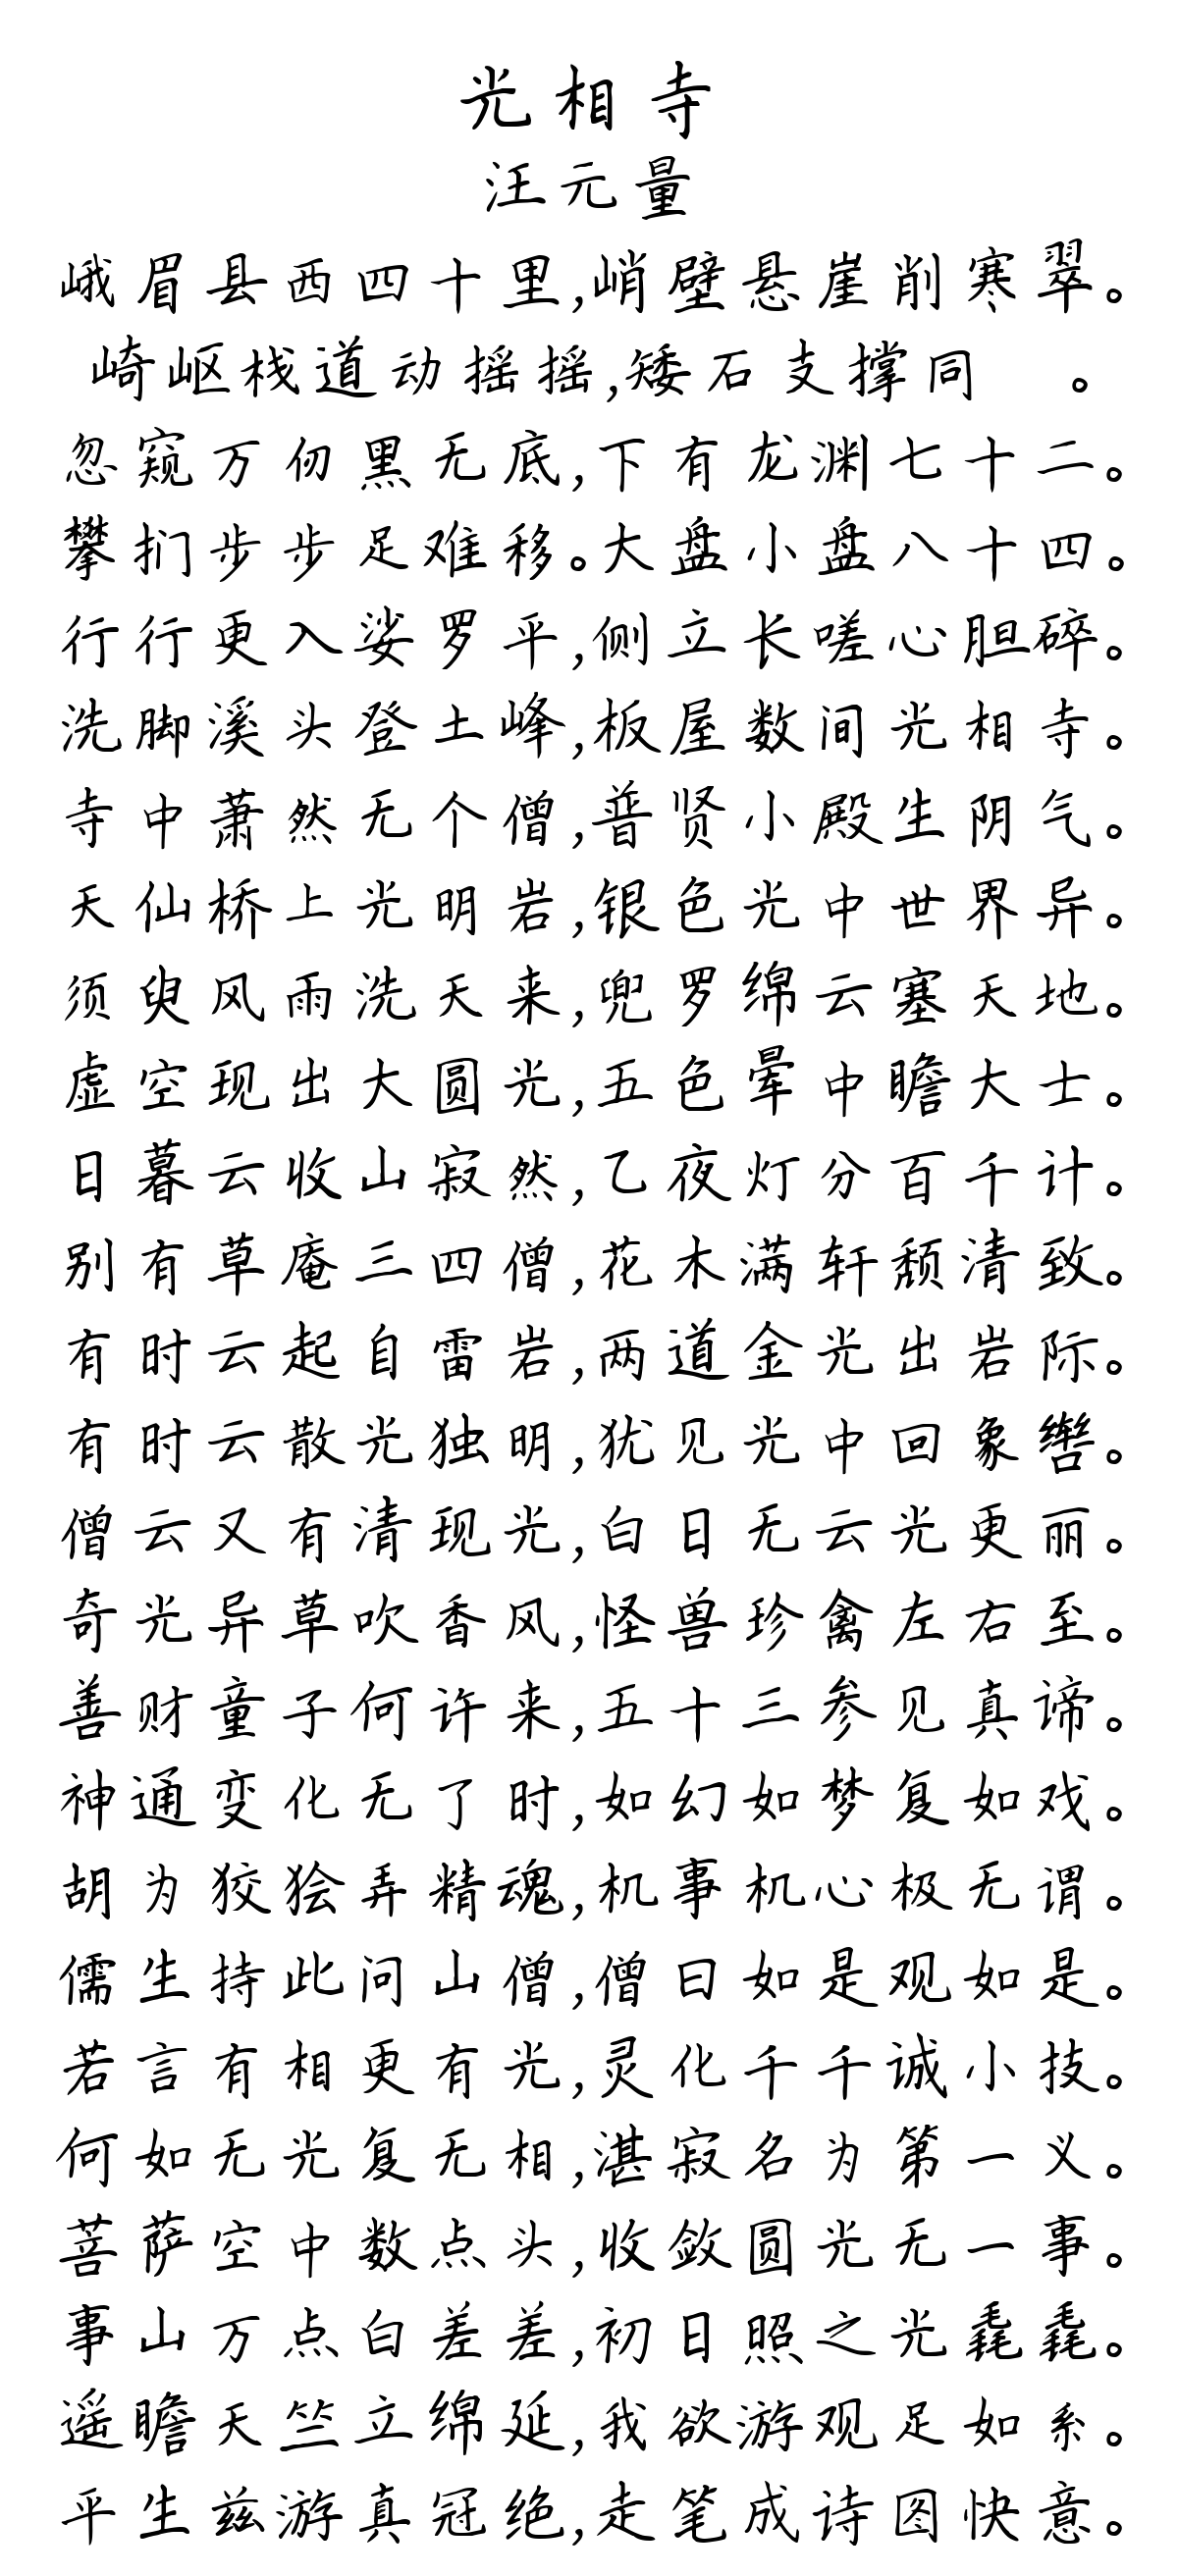 光相寺
汪元量
峨眉县西四十里,峭壁悬崖削寒翠。
崎岖栈道动摇摇,矮石支撑同 。
忽窥万仞黑无底,下有龙渊七十二。
攀扪步步足难移。大盘小盘八十四。
行行更入娑罗平,侧立长嗟心胆碎。
洗脚溪头登土峰,板屋数间光相寺。
寺中萧然无个僧,普贤小殿生阴气。
天仙桥上光明岩,银色光中世界异。
须臾风雨洗天来,兜罗绵云塞天地。
虚空现出大圆光,五色晕中瞻大士。
日暮云收山寂然,乙夜灯分百千计。
别有草庵三四僧,花木满轩颓清致。
有时云起自雷岩,两道金光出岩际。
有时云散光独明,犹见光中回象辔。
僧云又有清现光,白日无云光更丽。
奇光异草吹香风,怪兽珍禽左右至。
善财童子何许来,五十三参见真谛。
神通变化无了时,如幻如梦复如戏。
胡为狡狯弄精魂,机事机心极无谓。
儒生持此问山僧,僧曰如是观如是。
若言有相更有光,灵化千千诚小技。
何如无光复无相,湛寂名为第一义。
菩萨空中数点头,收敛圆光无一事。
事山万点白差差,初日照之光毳毳。
遥瞻天竺立绵延,我欲游观足如系。
平生兹游真冠绝,走笔成诗图快意。